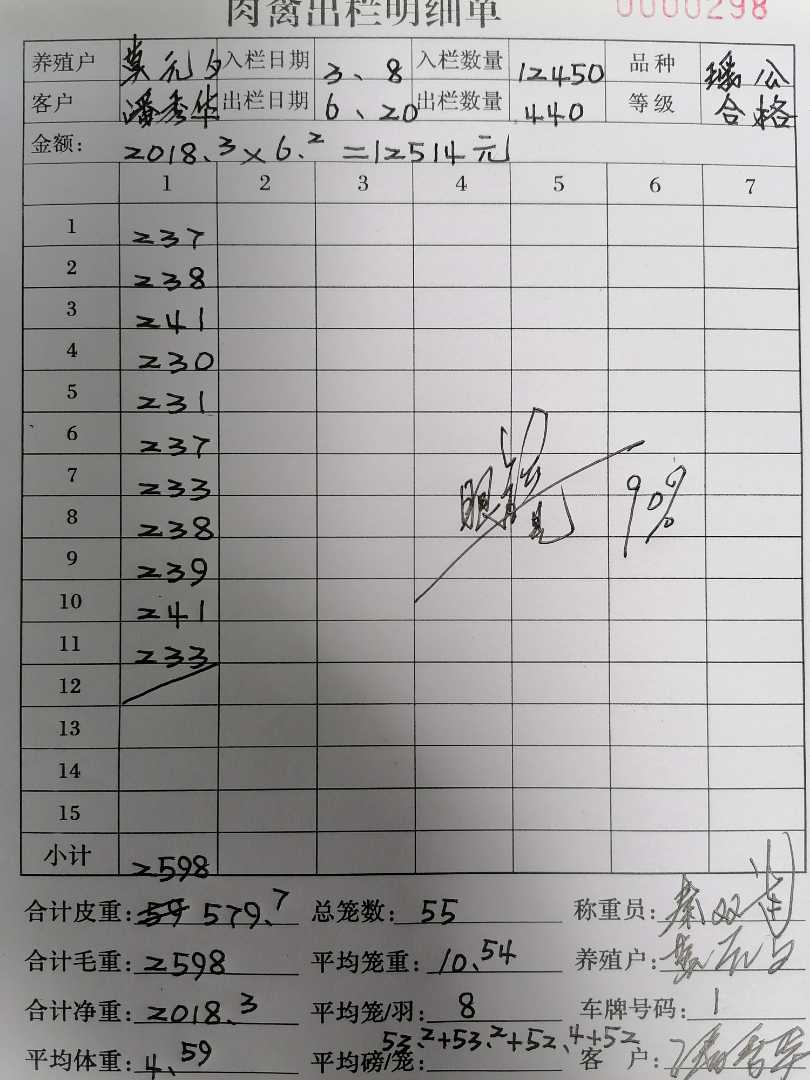 肉禽出栏明细单 0000298
养殖户 莫元夕 入栏日期 3、8 入栏数量 12450 品种 瑶公
客户 潘秀华 出栏日期 6、20 出栏数量 440 等级 合格
金额: 2018.3×6.2=12514元
1 2 3 4 5 6 7
1 237
2 238
3 241
4 230
5 231
6 237
7 233
8 238
9 239
10 241
11 233
12
13
14
15
眼 90%
小计 2598
合计皮重: 59 579.7 总笼数: 55 称重员: 秦双
合计毛重: 2598 平均笼重: 10.54 养殖户: 莫元夕
合计净重: 2018.3 平均笼/羽: 8 车牌号码: 1
平均体重: 4.59 平均磅/笼: 53.2+53.2+52.4+52 客户: 潘秀华